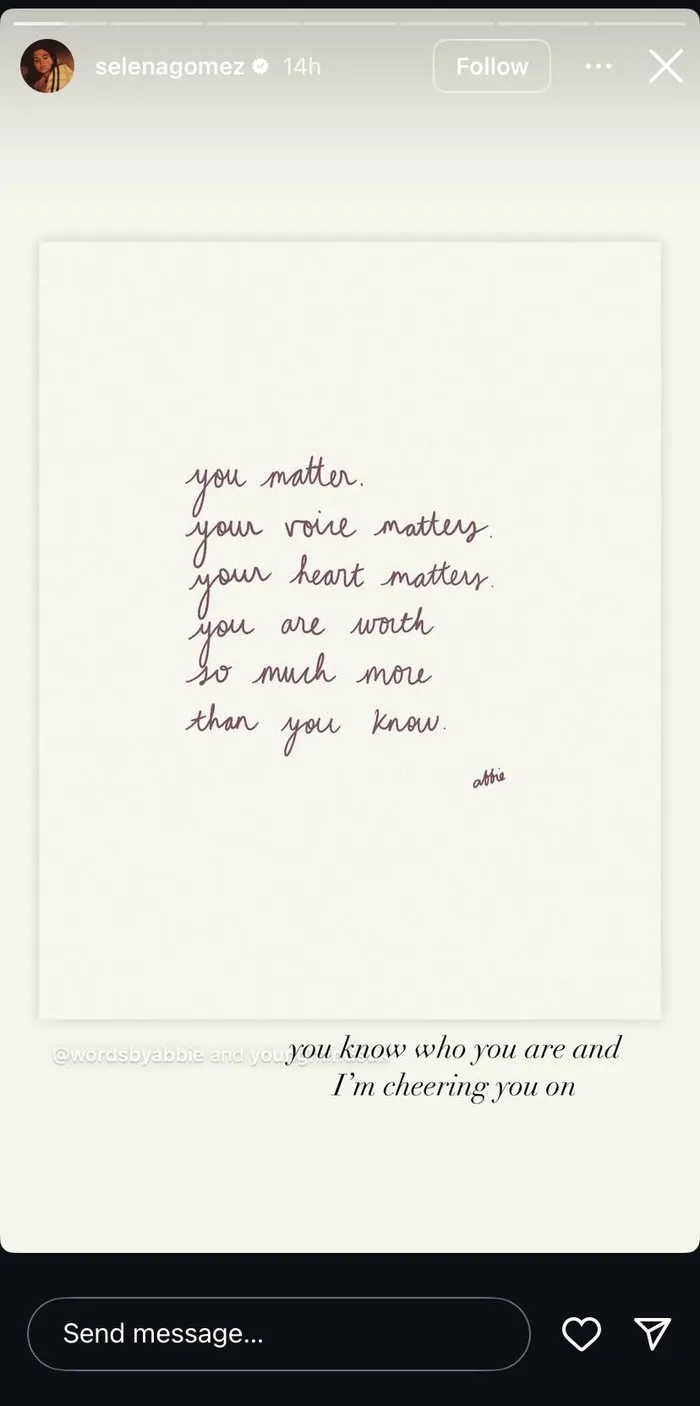 selenagomez 14h Follow
you matter.
your voice matters.
your heart matters.
you are worth
so much more
than you know.
abbie
@wordsbyabbie and
you know who you are and
I'm cheering you on
Send message...